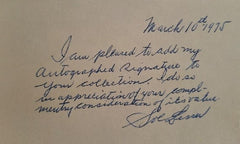 March 10th 1975
I am pleased to add my
Autographed Signature to
your collection. I do so
in appreciation of your compl-
mentry consideration of its value
Sol Lesser